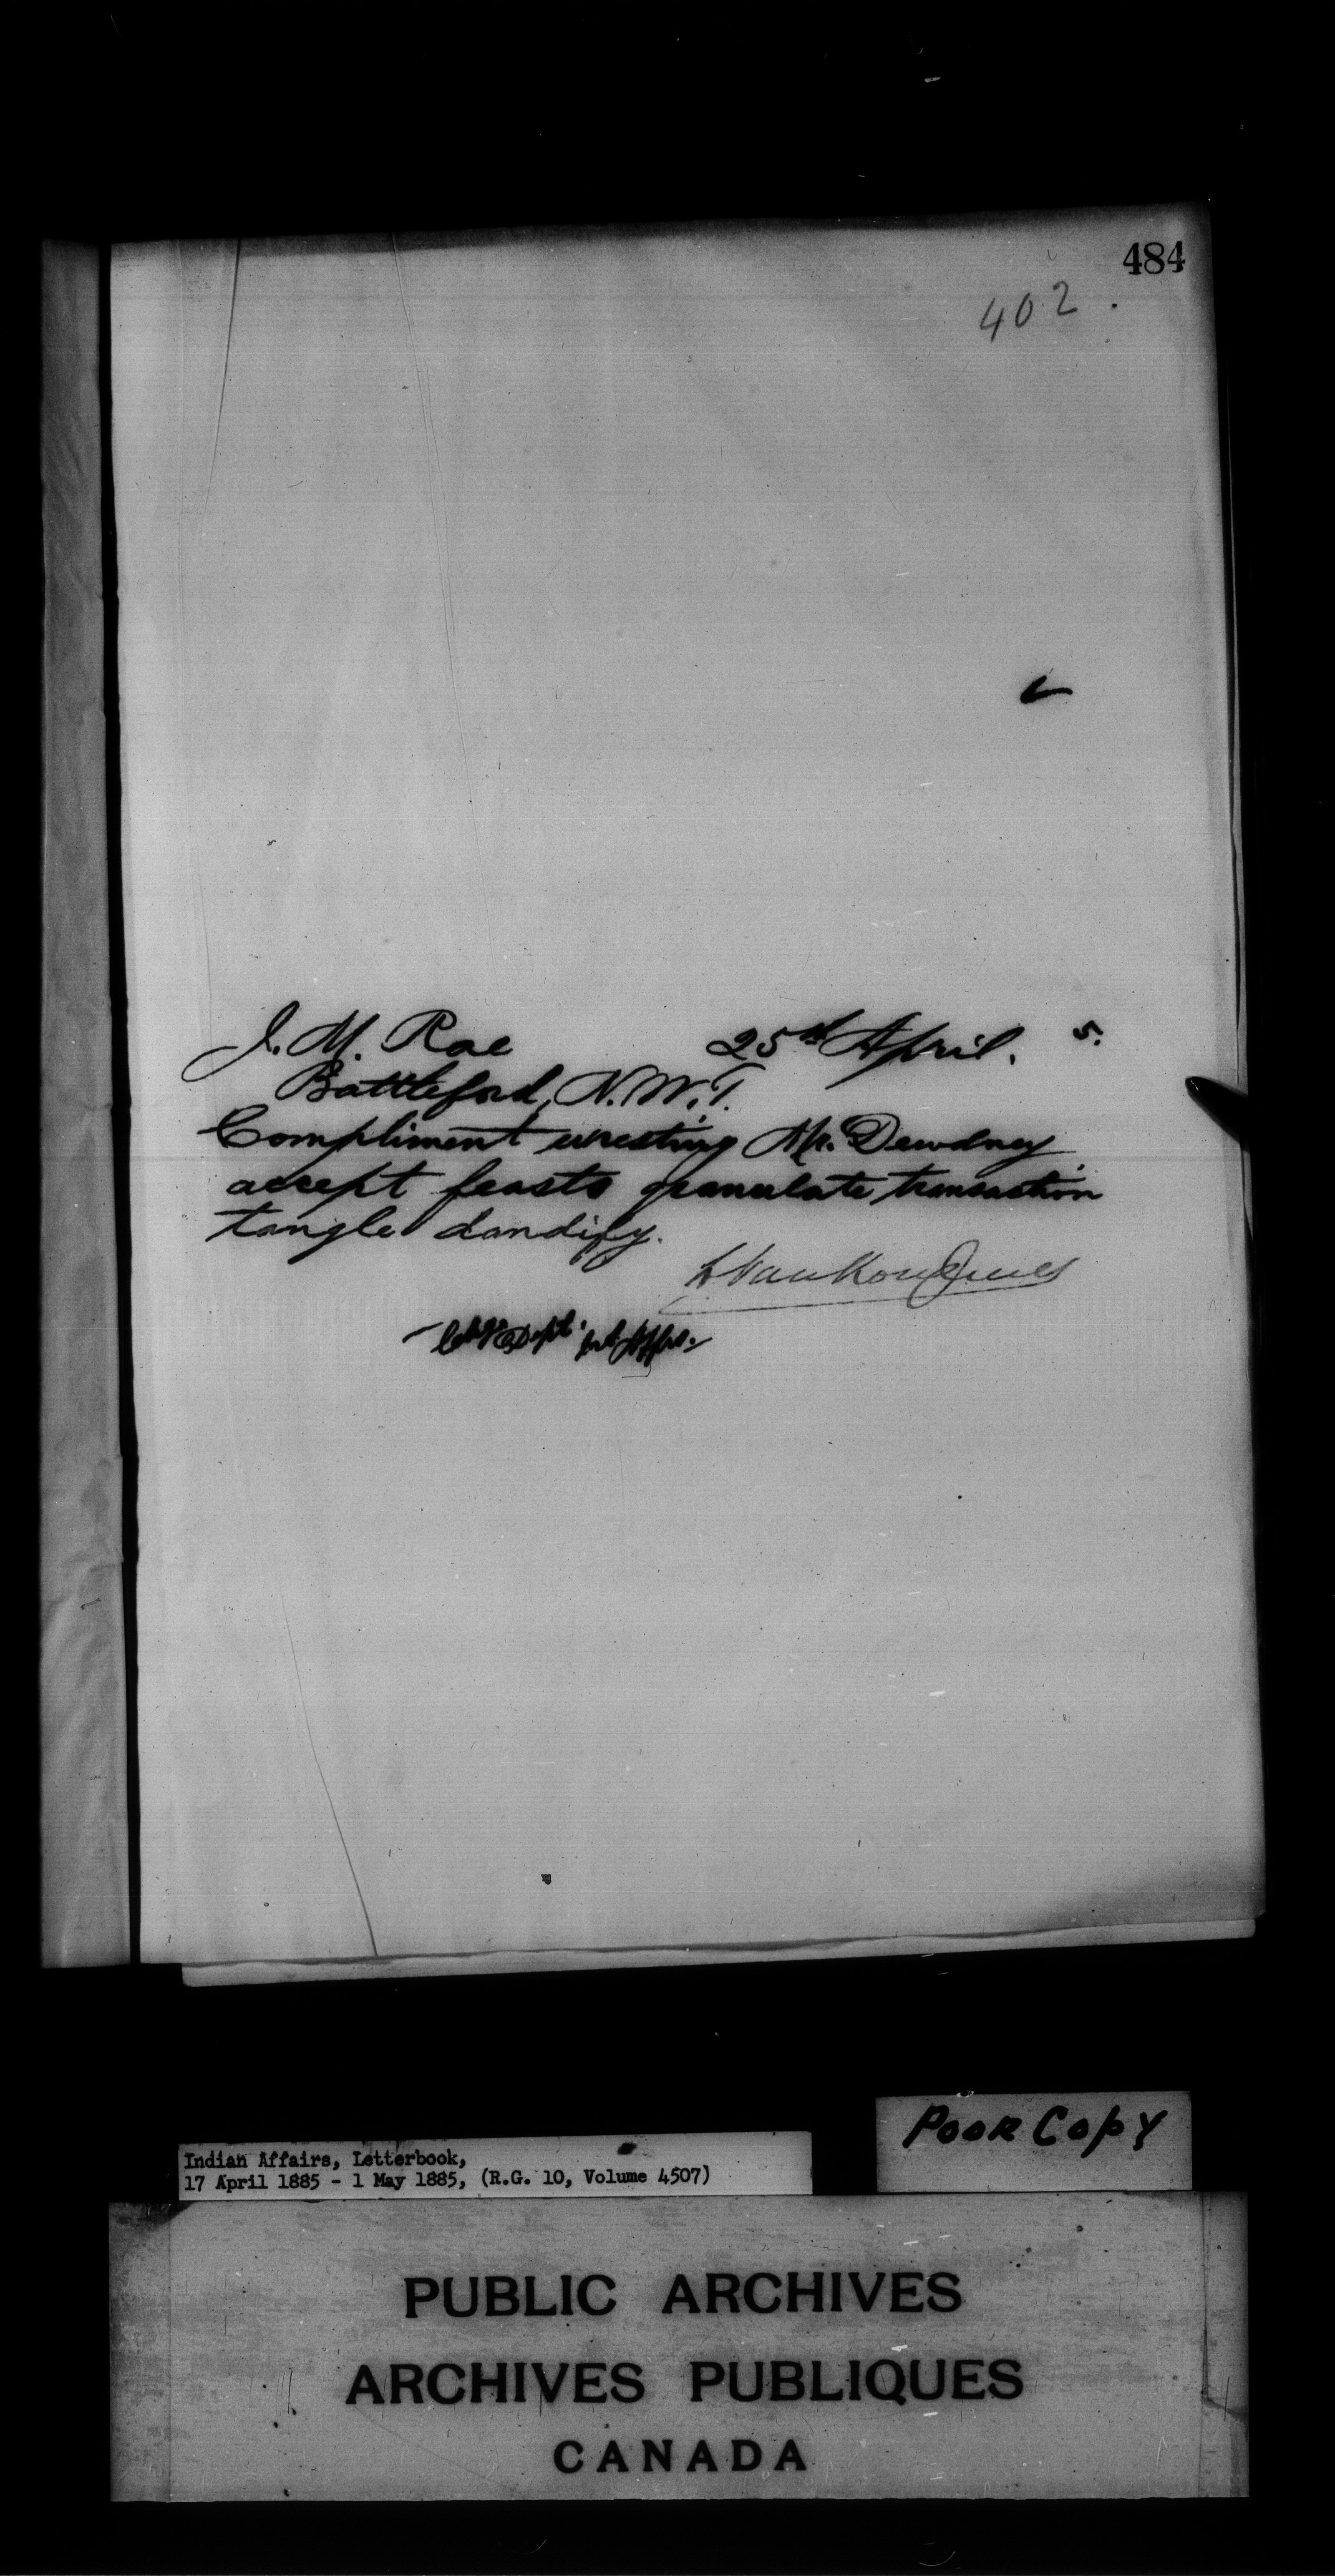 484
402.
J. M. Rae 25th April. 5.
Battleford, N.W.T.
Compliment wresting Mr. Dewdney
accept feasts granulate transaction
tangle dandify.
L VanKoughnet
Chg Dept. Ind. Affrs.
Poor Copy
Indian Affairs, Letterbook,
17 April 1885 - 1 May 1885, (R.G. 10, Volume 4507)
PUBLIC ARCHIVES
ARCHIVES PUBLIQUES
CANADA